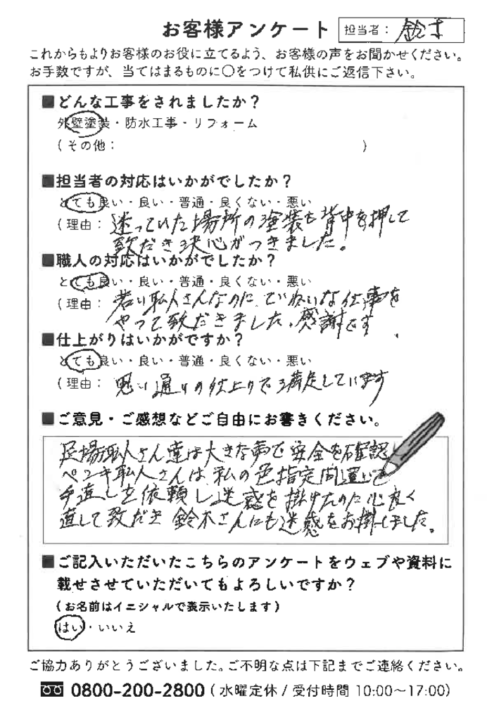 お客様アンケート 担当者： 鈴木
これからもよりお客様のお役に立てるよう、お客様の声をお聞かせください。
お手数ですが、当てはまるものに〇をつけて私供にご返信下さい。
■どんな工事をされましたか？
外壁塗装・防水工事・リフォーム
（その他： ）
■担当者の対応はいかがでしたか？
とても良い・良い・普通・良くない・悪い
（理由： 迷っていた場所の塗装も背中を押して
致だき決心がつきました。
■職人の対応はいかがでしたか？
とても良い・良い・普通・良くない・悪い
（理由： 若い職人さんなのにていねいな仕事を
やって致だきました、感謝です
■仕上がりはいかがですか？
とても良い・良い・普通・良くない・悪い
（理由： 思い通りの仕上りで満足しています
■ご意見・ご感想などご自由にお書きください。
足場職人さん達は大きな声で安全を確認し
ペンキ職人さんは、私の色指定間違いで
手直しを依頼し迷惑を掛けたのに心良く
直して致だき 鈴木さんにも迷惑をお掛しました。
■ご記入いただいたこちらのアンケートをウェブや資料に
載せさせていただいてもよろしいですか？
（お名前はイニシャルで表示いたします）
はい・いいえ
ご協力ありがとうございました。ご不明な点は下記までご連絡ください。
0800-200-2800（水曜定休 / 受付時間 10:00～17:00）